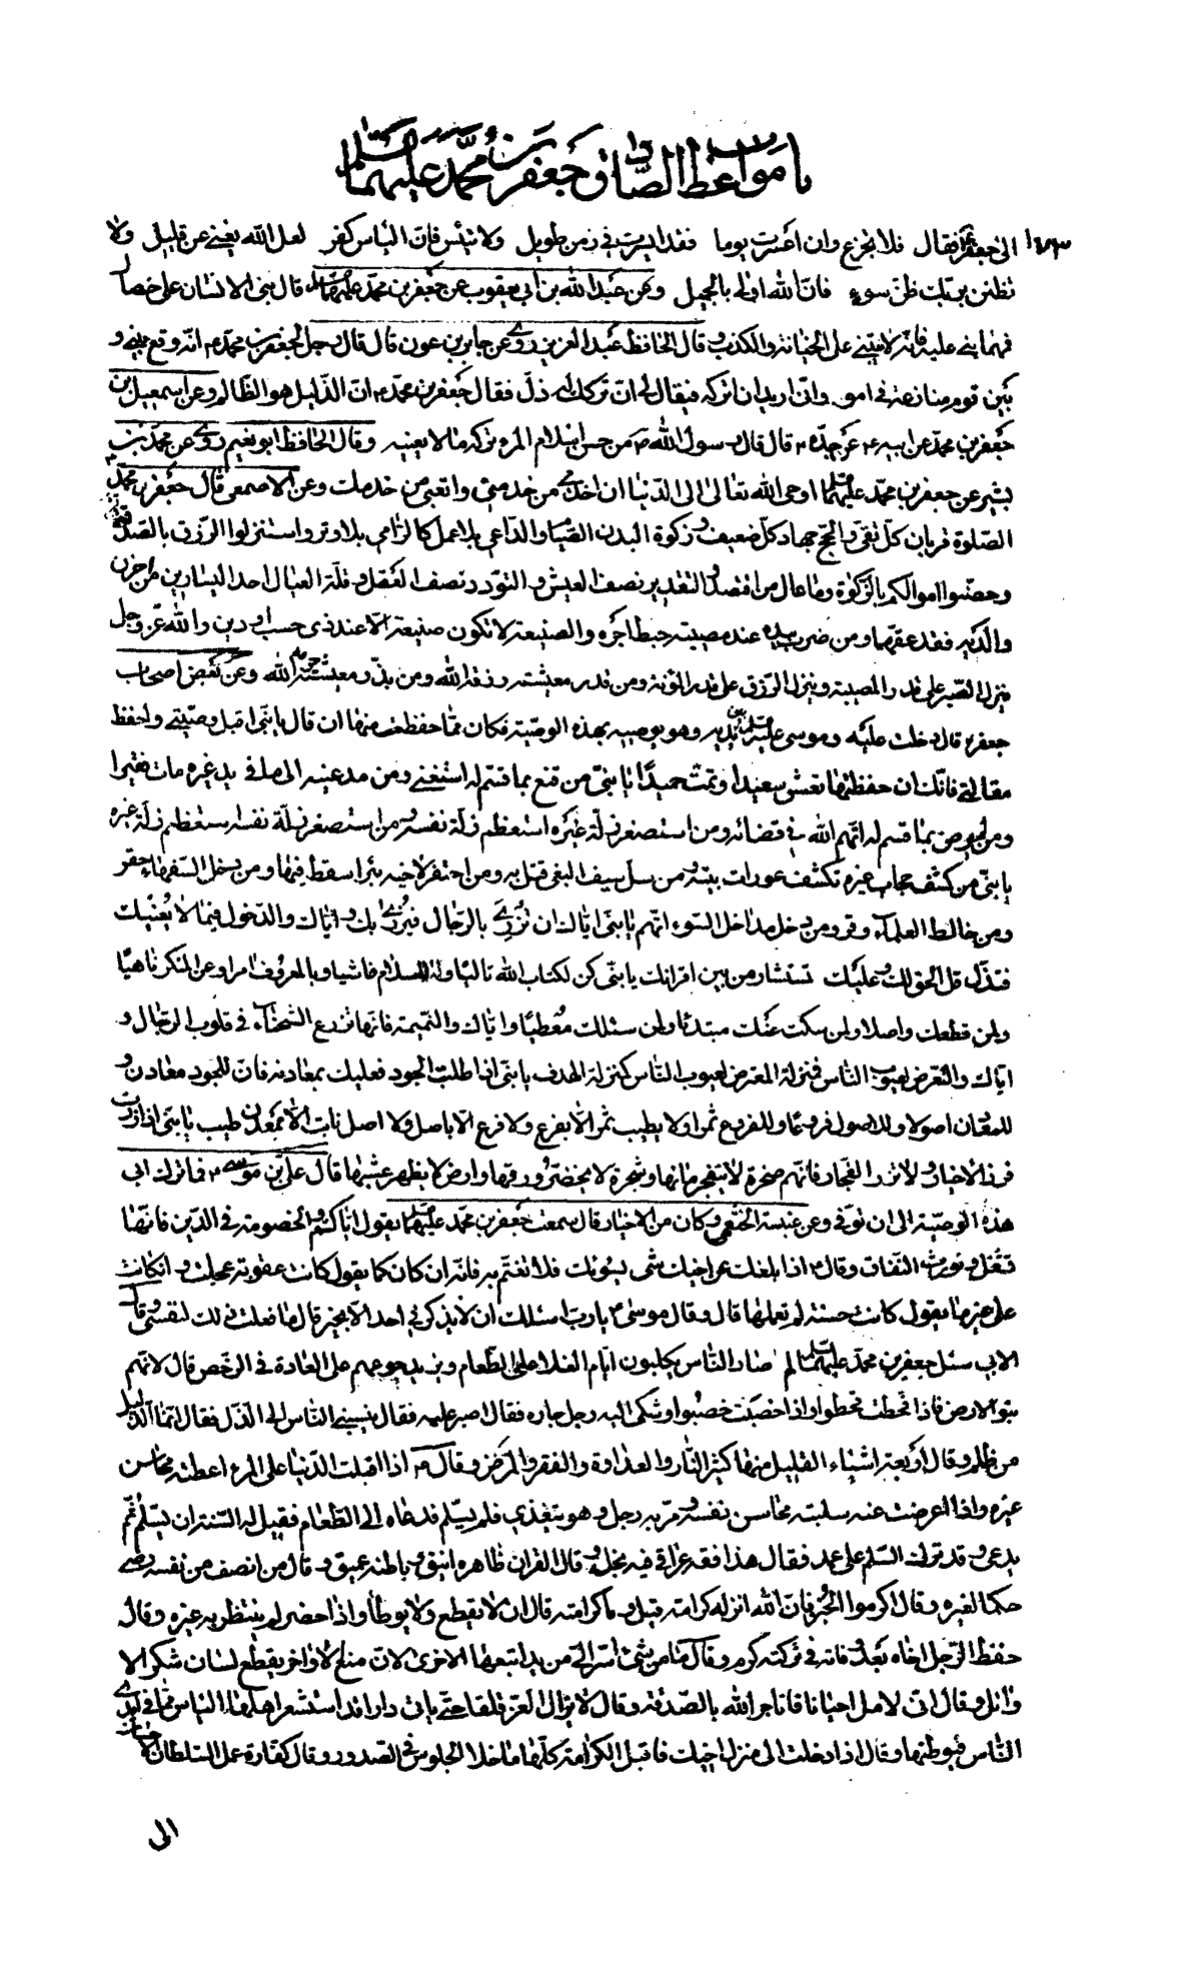 باب مواعظ الصادق جعفر بن محمد عليهما السلام
الى جعفر فقال فلا تجزع وان اعسرت يوما فقد ايسرت في زمن طويل ولا تيئس فان اليأس كفر لعل الله يغني عن قليل ولا
تظنن بربك ظن سوء فان الله اولى بالجميل وعن عبد الله بن ابي يعقوب عن جعفر بن محمد عليهما السلام قال بني الانسان على خصال
فمهما بني عليه فانه لا يبنى على الخيانة والكذب وقال الحافظ عبد العزيز روى عن جابر بن عون قال قال رجل لجعفر بن محمد ع انه وقع بيني و
بين قوم منازعة في امر واني اريد ان اتركه فيقال لي ان تركك له ذل فقال جعفر بن محمد ع ان الذليل هو الظالم وعن اسمعيل بن
جعفر بن محمد عن ابيه ع عن جده ع قال قال رسول الله ص من حسن اسلام المرء تركه ما لا يعنيه وقال الحافظ ابو نعيم روى عن محمد بن
بشير عن جعفر بن محمد عليهما السلام اوحى الله تعالى الى الدنيا ان اخدمي من خدمني واتعبي من خدمك وعن الاصمعي قال جعفر بن محمد ع
الصلوة قربان كل تقي والحج جهاد كل ضعيف وزكوة البدن الصيام والداعي بلا عمل كالرامي بلا وتر واستنزلوا الرزق بالصدقة
وحصنوا اموالكم بالزكوة وما عال من اقتصد والتقدير نصف العيش والتودد نصف العقل وقلة العيال احد اليسارين من احزن
والديه فقد عقهما ومن ضرب بيده عند مصيبته حبط اجره والصنيعة لا تكون صنيعة الا عند ذي حسب او دين والله عز وجل
ينزل الصبر على قدر المصيبة وينزل الرزق على قدر المؤنة ومن قدر معيشته رزقه الله ومن بذر معيشته حرمه الله وعن بعض اصحاب
جعفر ع قال دخلت عليه وموسى عليه السلام بين يديه وهو يوصيه بهذه الوصية فكان مما حفظت منها ان قال يا بني اقبل وصيتي واحفظ
مقالتي فانك ان حفظتها تعش سعيدا وتمت حميدا يا بني من قنع بما قسم له استغنى ومن مد عينيه الى ما في يد غيره مات فقيرا
ومن لم يرض بما قسم له اتهم الله في قضائه ومن استصغر زلة غيره استعظم زلة نفسه ومن استصغر زلة نفسه استعظم زلة غيره
يا بني من كشف حجاب غيره تكشف عورات بيته ومن سل سيف البغي قتل به ومن احتفر لاخيه بئرا سقط فيها ومن دخل السفهاء حقر
ومن خالط العلماء وقر ومن دخل مداخل السوء اتهم يا بني اياك ان تزري بالرجال فيزرى بك واياك والدخول فيما لا يعنيك
فتذل قل الحق لك وعليك تستشار من بين اقرانك يا بني كن لكتاب الله تاليا وللسلام فاشيا وبالمعروف امرا وعن المنكر ناهيا
ولمن قطعك واصلا ولمن سكت عنك مبتدئا ولمن سئلك معطيا واياك والنميمة فانها تزرع الشحناء في قلوب الرجال و
اياك والتعرض لعيوب الناس فمنزلة المعترض لعيوب الناس كمنزلة الهدف يا بني اذا طلبت الجود فعليك بمعادنه فان للجود معادن و
للمعادن اصولا وللاصول فروعا وللفروع ثمرا ولا يطيب ثمر الا بفرع ولا فرع الا باصل ولا اصل ثابت الا بمعدن طيب يا بني اذا زرت
فزر الاخيار ولا تزر الفجار فانهم صخرة لا يتفجر ماؤها وشجرة لا يخضر ورقها وارض لا يظهر عشبها قال علي بن موسى ع فما ترك ابي
هذه الوصية الى ان توفي وعن عنبسة الخثعمي وكان من الاخيار قال سمعت جعفر بن محمد عليهما السلام يقول اياكم والخصومة في الدين فانها
تشغل وتورث النفاق وقال ع اذا بلغك عن اخيك شئ يسوءك فلا تغتم به فانه ان كان كما يقول كانت عقوبة عجلت وان كانت
على غير ما يقول كانت حسنة لم تعملها قال وقال موسى ع يا رب اسئلك ان لا يذكرني احد الا بخير قال ما فعلت ذلك لنفسي وقال
الابي سئل جعفر بن محمد عليهما السلام لم صار الناس يكلبون ايام الغلاء على الطعام ويزيد جوعهم على العادة في الرخص قال لانهم
بنو الارض فاذا قحطت قحطوا واذا خصبت خصبوا وشكى اليه رجل جاره فقال اصبر عليه فقال ينسبني الناس الى الذل فقال انما الذليل
من ظلم وقال اربعة اشياء القليل منها كثير النار والعداوة والفقر والمرض وقال ع اذا اقبلت الدنيا على المرء اعطته محاسن
غيره واذا اعرضت عنه سلبته محاسن نفسه ومر به رجل وهو يتغذى فلم يسلم فدعاه الى الطعام فقيل له السنة ان يسلم ثم
يدعى وقد ترك السلم على عمد فقال هذا فقه عراقي فيه بخل وقال القران ظاهره انيق وباطنه عميق وقال من انصف من نفسه رضي
حكما لغيره وقال اكرموا الخبز فان الله انزله كرامة قيل وما كرامته قال ان لا يقطع ولا يوطأ واذا حضر لم ينتظر به غيره وقال
حفظ الرجل اخاه بعد وفاته في تركته كرم وقال ما من شئ اسر الي من يد اتبعها الاخرى لان منع الاواخر يقطع لسان شكر الا
وائل وقال اني لاملق احيانا فاتاجر الله بالصدقة وقال لا يزال العز قلقا حتى ياتي دارا قد استشعر اهلها الياس مما في ايدي
الناس فيوطنها وقال اذا دخلت الى منزل اخيك فاقبل الكرامة كلها ما خلا الجلوس في الصدر وقال كفارة عمل السلطان الاحسان
الى